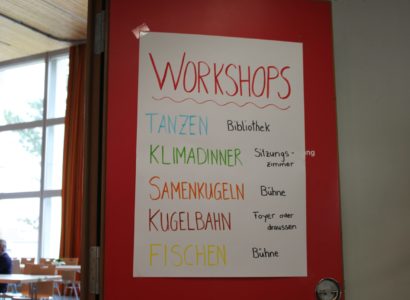 WORKSHOPS
TANZEN Bibliothek
KLIMADINNER Sitzungs-
zimmer
SAMENKUGELN Bühne
KUGELBAHN Foyer oder
draussen
FISCHEN Bühne